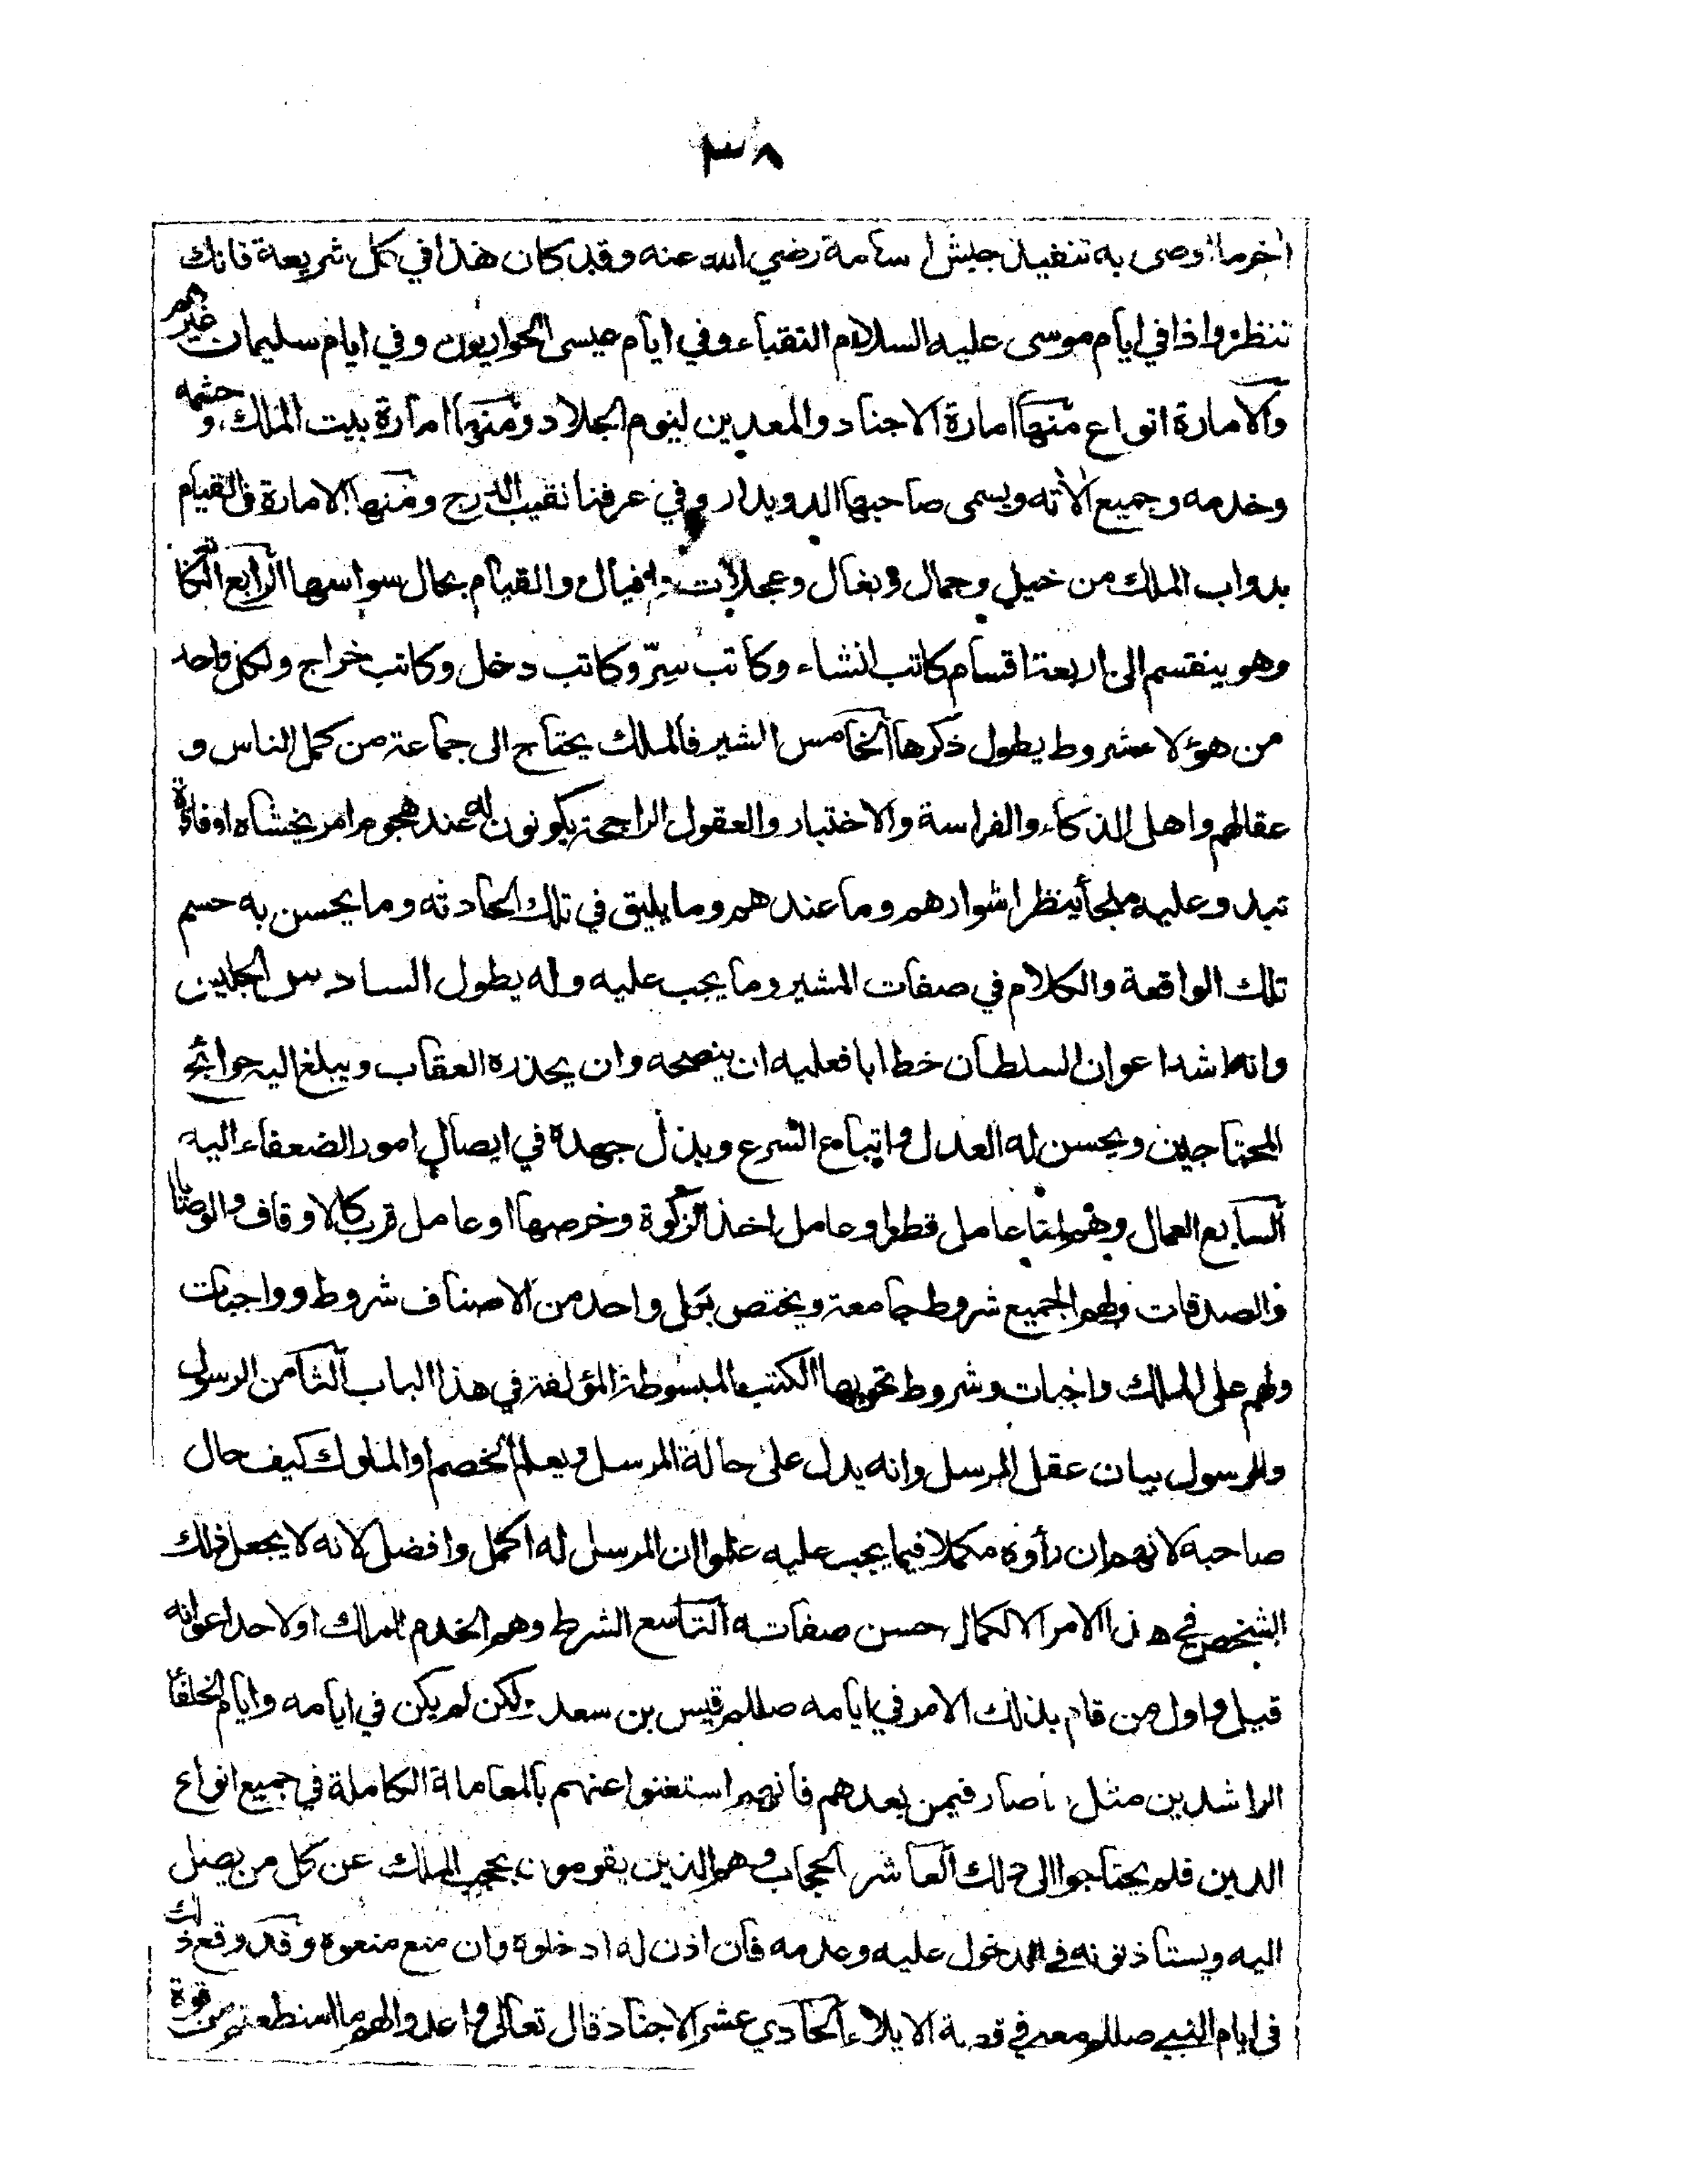 ٣٨
اخر ما اوصى به تنفيذ جيش اسامة رضي الله عنه وقد كان هذا في كل شريعة فانك
تنظروا ذا في ايام موسى عليه السلام النقباء وفي ايام عيسى الحواريون وفي ايام سليمان غيرهم
والامارة انواع منها امارة الاجناد والمعدين ليوم الجلاد ومنها امارة بيت الملك وحشمه
وخدمه وجميع الاته ويسمى صاحبها الدويدار وفي عرفنا نقيب الدرج ومنها الامارة في القيام
بدواب الملك من خيل وجمال وبغال وعجلات وافيال والقيام بحال سواسها الرابع الكاتب
وهو ينقسم الى اربعة اقسام كاتب انشاء وكاتب سِرّ وكاتب دخل وكاتب خراج ولكل واحد
من هؤلاء شروط يطول ذكرها الخامس المشير فالملك يحتاج الى جماعة من كمل الناس و
عقالهم واهل الذكاء والفراسة والاختبار والعقول الراجحة يكونون له عند هجوم امر يخشاه او فادة
تبدو عليه ملجأ ينظر اشوارهم وما عندهم وما يليق في تلك الحادثه وما يحسن به حسم
تلك الواقعة والكلام في صفات المشير وما يجب عليه وله يطول السادس الجليس
وانه اشد اعوان السلطان خطابا فعليه ان ينصحه وان يحذره العقاب ويبلغ اليه حوائج
المحتاجين ويحسن له العدل واتباع الشرع ويبذل جهدة في ايصال امور الضعفاء اليه
السابع العمال وهم اما عامل قطر او عامل اخذ الزكوة وخرصها او عامل قرب كالاوقاف والوصايا
والصدقات ولهم الجميع شروط جامعة ويختص بكل واحد من الاصناف شروط وواجبات
ولهم على الملك واجبات وشروط تحويها الكتب المبسوطة المؤلفة في هذا الباب الثامن الرسول
والرسول بيان عقل المرسل وانه يدل على حالة المرسل ويعلم الخصم او الملوك كيف حال
صاحبه لانهم ان رأوه مكملا فيما يجب عليه علموا ان المرسل له اكمل وافضل لانه لا يجعل ذلك
الشخص في هذا الامر الا لكمال حسن صفاته التاسع الشرط وهم الخدم للملك او لاحد اعوانه
قيل واول من قام بذلك الامر في ايامه صللم قيس بن سعد ولكن لم يكن في ايامه وايام الخلفا
الراشدين مثل ما صار فيمن بعدهم فانهم استغنوا عنهم بالمعاملة الكاملة في جميع انواع
الدين فلم يحتاجوا الى ذلك العاشر الحجاب وهم الذين يقومون بحجب الملك عن كل من يصل
اليه ويستاذنونه في الدخول عليه وعدمه فان اذن له ادخلوة وان منع منعوة وقد وقع ذلك
في ايام النبي صللم معه في قصة الايلاء الحادي عشر الاجناد قال تعالى واعدوا لهم ما استطعتم من قوة